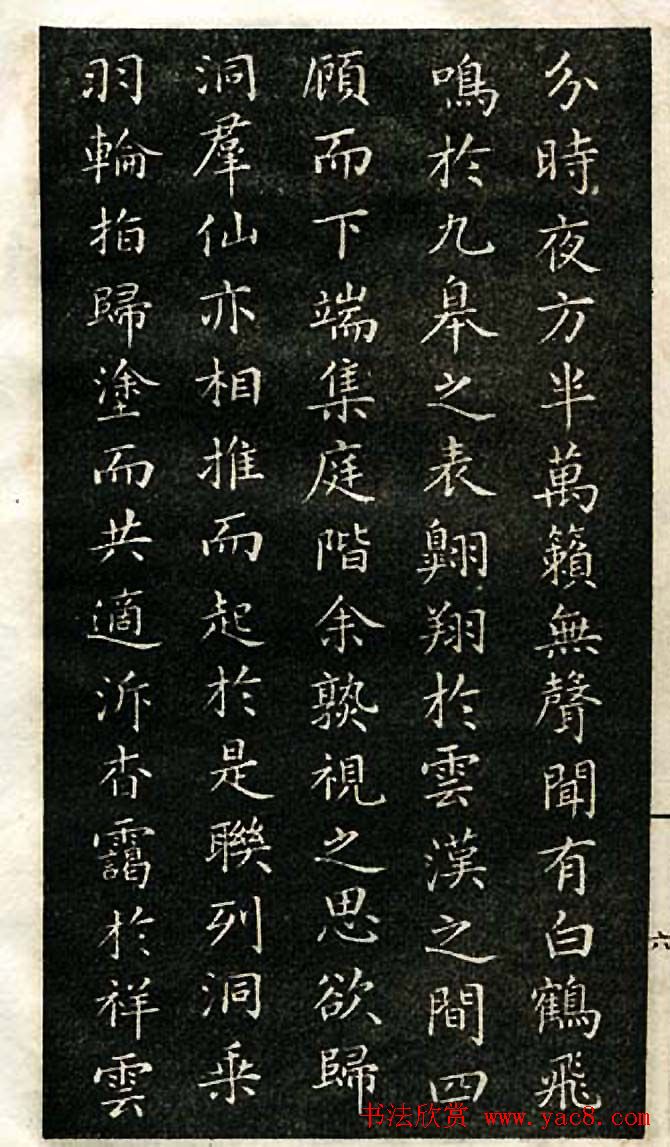 分時夜方半萬籟無聲聞有白鶴飛
鳴於九臯之表翺翔於雲漢之間四
顧而下端集庭階余孰視之思欲歸
洞羣仙亦相推而起於是聯列洞乗
羽輪指歸塗而共適泝杳靄於祥雲
六
书法欣赏 www.yac8.com